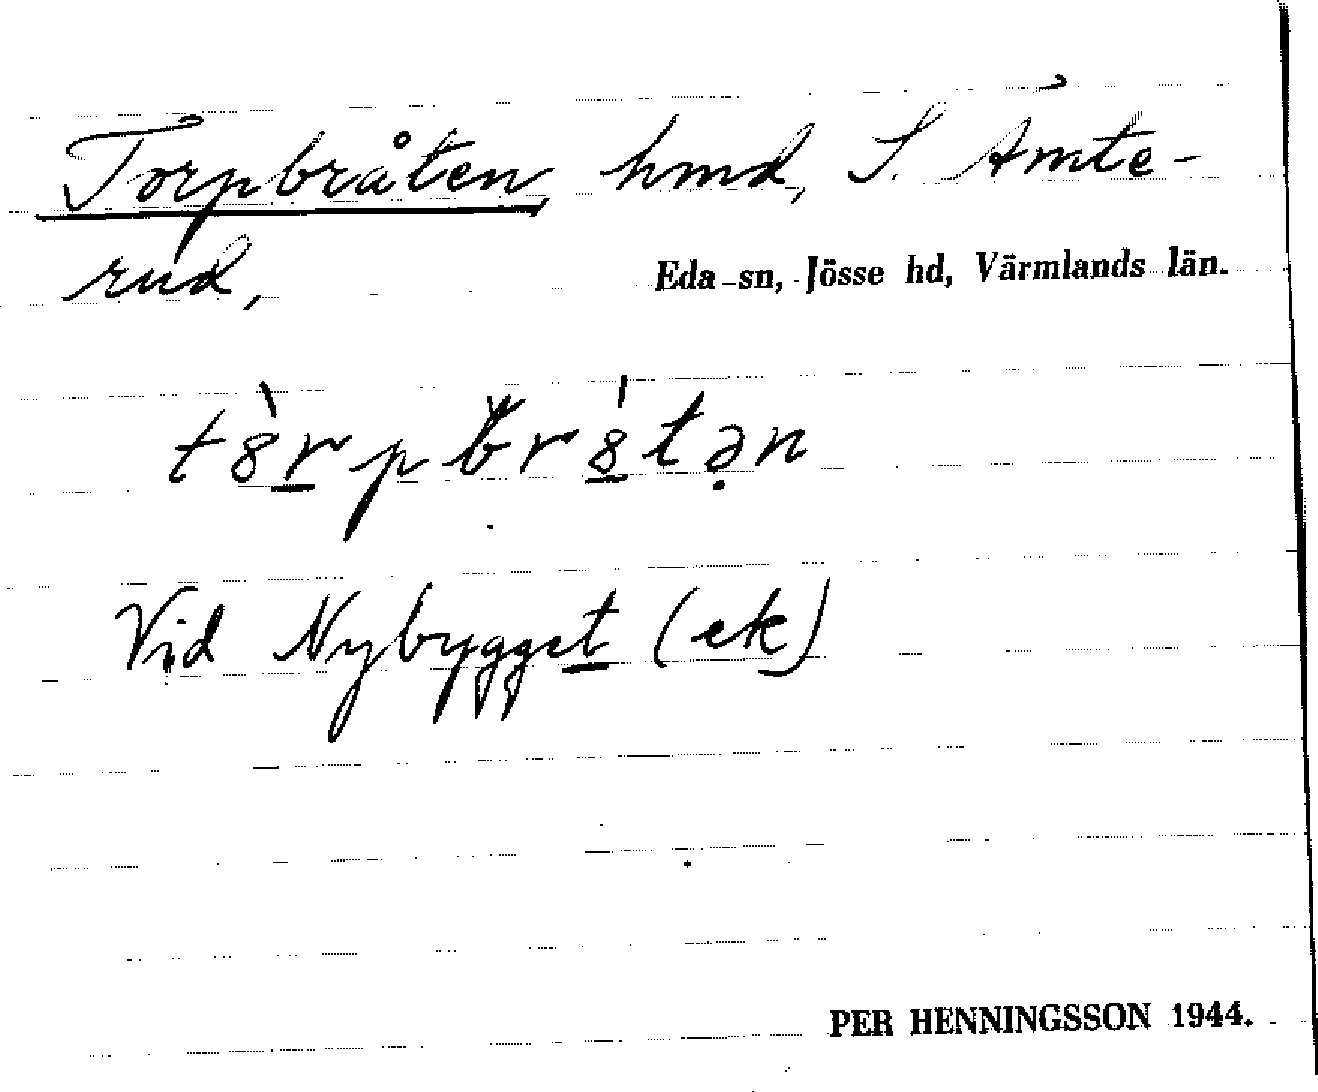 Torpbråten hmd, S. Åmte-
rud,
Eda sn, Jösse hd, Värmlands län.
Vid Nybygget (ek)
PER HENNINGSSON 1944.